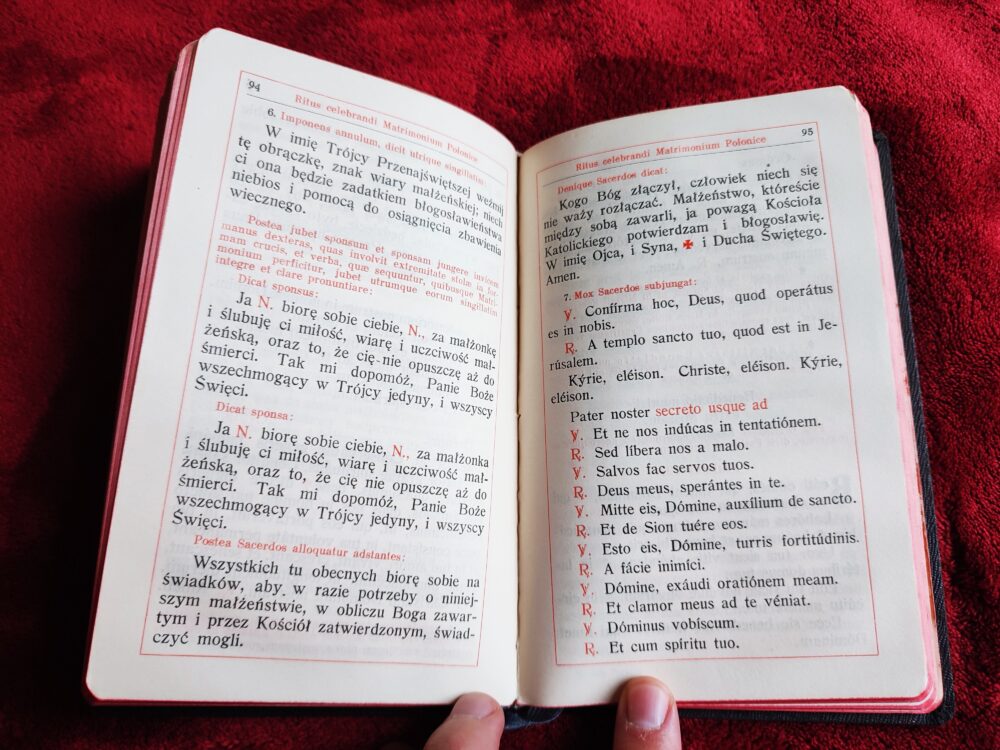 94
Ritus celebrandi Matrimonium Polonice
6. Imponens annulum, dicit utrique singillatim:
W imię Trójcy Przenajświętszej weźmij
tę obrączkę, znak wiary małżeńskiej; niech
ci ona będzie zadatkiem błogosławieństwa
niebios i pomocą do osiągnięcia zbawienia
wiecznego.
Postea jubet sponsum et sponsam jungere invicem
manus dexteras, quas involvit extremitate stolæ in for-
mam crucis, et verba, quæ sequuntur, quibusque Matri-
monium perficitur, jubet utrumque eorum singillatim
integre et clare pronuntiare:
Dicat sponsus:
Ja N. biorę sobie ciebie, N., za małżonkę
i ślubuję ci miłość, wiarę i uczciwość mał-
żeńską, oraz to, że cię nie opuszczę aż do
śmierci. Tak mi dopomóż, Panie Boże
wszechmogący w Trójcy jedyny, i wszyscy
Święci.
Dicat sponsa:
Ja N. biorę sobie ciebie, N., za małżonka
i ślubuję ci miłość, wiarę i uczciwość mał-
żeńską, oraz to, że cię nie opuszczę aż do
śmierci. Tak mi dopomóż, Panie Boże
wszechmogący w Trójcy jedyny, i wszyscy
Święci.
Postea Sacerdos alloquatur adstantes:
Wszystkich tu obecnych biorę sobie na
świadków, aby w razie potrzeby o niniej-
szym małżeństwie, w obliczu Boga zawar-
tym i przez Kościół zatwierdzonym, świad-
czyć mogli.
95
Ritus celebrandi Matrimonium Polonice
Denique Sacerdos dicat:
Kogo Bóg złączył, człowiek niech się
nie waży rozłączać. Małżeństwo, któreście
między sobą zawarli, ja powagą Kościoła
Katolickiego potwierdzam i błogosławię.
W imię Ojca, i Syna, ✠ i Ducha Świętego.
Amen.
7. Mox Sacerdos subjungat:
℣. Confírma hoc, Deus, quod operátus
es in nobis.
℟. A templo sancto tuo, quod est in Je-
rúsalem.
Kýrie, eléison. Christe, eléison. Kýrie,
eléison.
Pater noster secreto usque ad
℣. Et ne nos indúcas in tentatiónem.
℟. Sed líbera nos a malo.
℣. Salvos fac servos tuos.
℟. Deus meus, sperántes in te.
℣. Mitte eis, Dómine, auxílium de sancto.
℟. Et de Sion tuére eos.
℣. Esto eis, Dómine, turris fortitúdinis.
℟. A fácie inimíci.
℣. Dómine, exáudi oratiónem meam.
℟. Et clamor meus ad te véniat.
℣. Dóminus vobíscum.
℟. Et cum spíritu tuo.